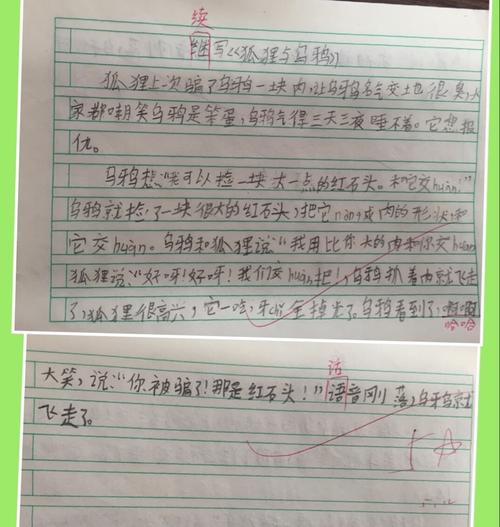 续
继写《狐狸与乌鸦》
狐狸上次骗了乌鸦一块肉,让乌鸦名气变地很臭,大
家都嘲笑乌鸦是笨蛋,乌鸦气得三天三夜睡不着。它想报
仇。
乌鸦想:“我可以捡一块大一点的红石头。和它交huàn!”
乌鸦就捡了一块很大的红石头,把它nòng成肉的形状,和
它交huàn。乌鸦和狐狸说:“我用比你大的肉和你交huàn
狐狸说:“好呀!好呀!我们交huàn把!,乌鸦抓着肉就飞走
了,狐狸很高兴,它一咬,牙全掉光了。乌鸦看到了,
哈哈
话
大笑,说:“你被骗了!那是红石头!”语音刚落,乌鸦就
飞走了。
5A